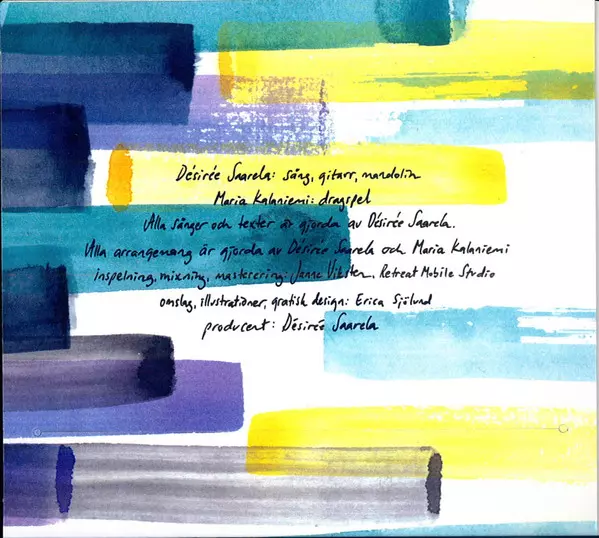 Désirée Saarela: sång, gitarr, mandolin
Maria Kalaniemi: dragspel
Alla sånger och texter är gjorda av Désirée Saarela.
Alla arrangemang är gjorda av Désirée Saarela och Maria Kalaniemi
inspelning, mixning, mastering: Janne Viksten, Retreat Mobile Studio
omslag, illustrationer, grafisk design: Erica Sjölund
producent: Désirée Saarela